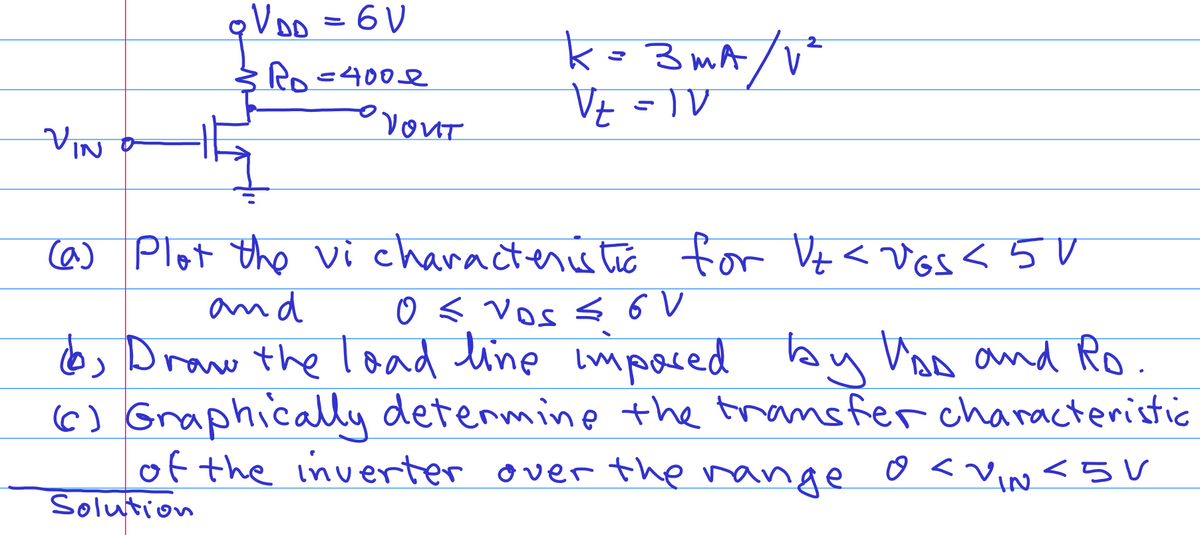 VDD = 6V
k = 3mA/V²
RD = 400Ω
Vt = 1V
VOUT
VIN
(a) Plot the vi characteristic for Vt < VGS < 5V
and 0 ≤ VDS ≤ 6V
b, Draw the load line imposed by VDD and RD.
(c) Graphically determine the transfer characteristic
of the inverter over the range 0 < VIN < 5V
Solution